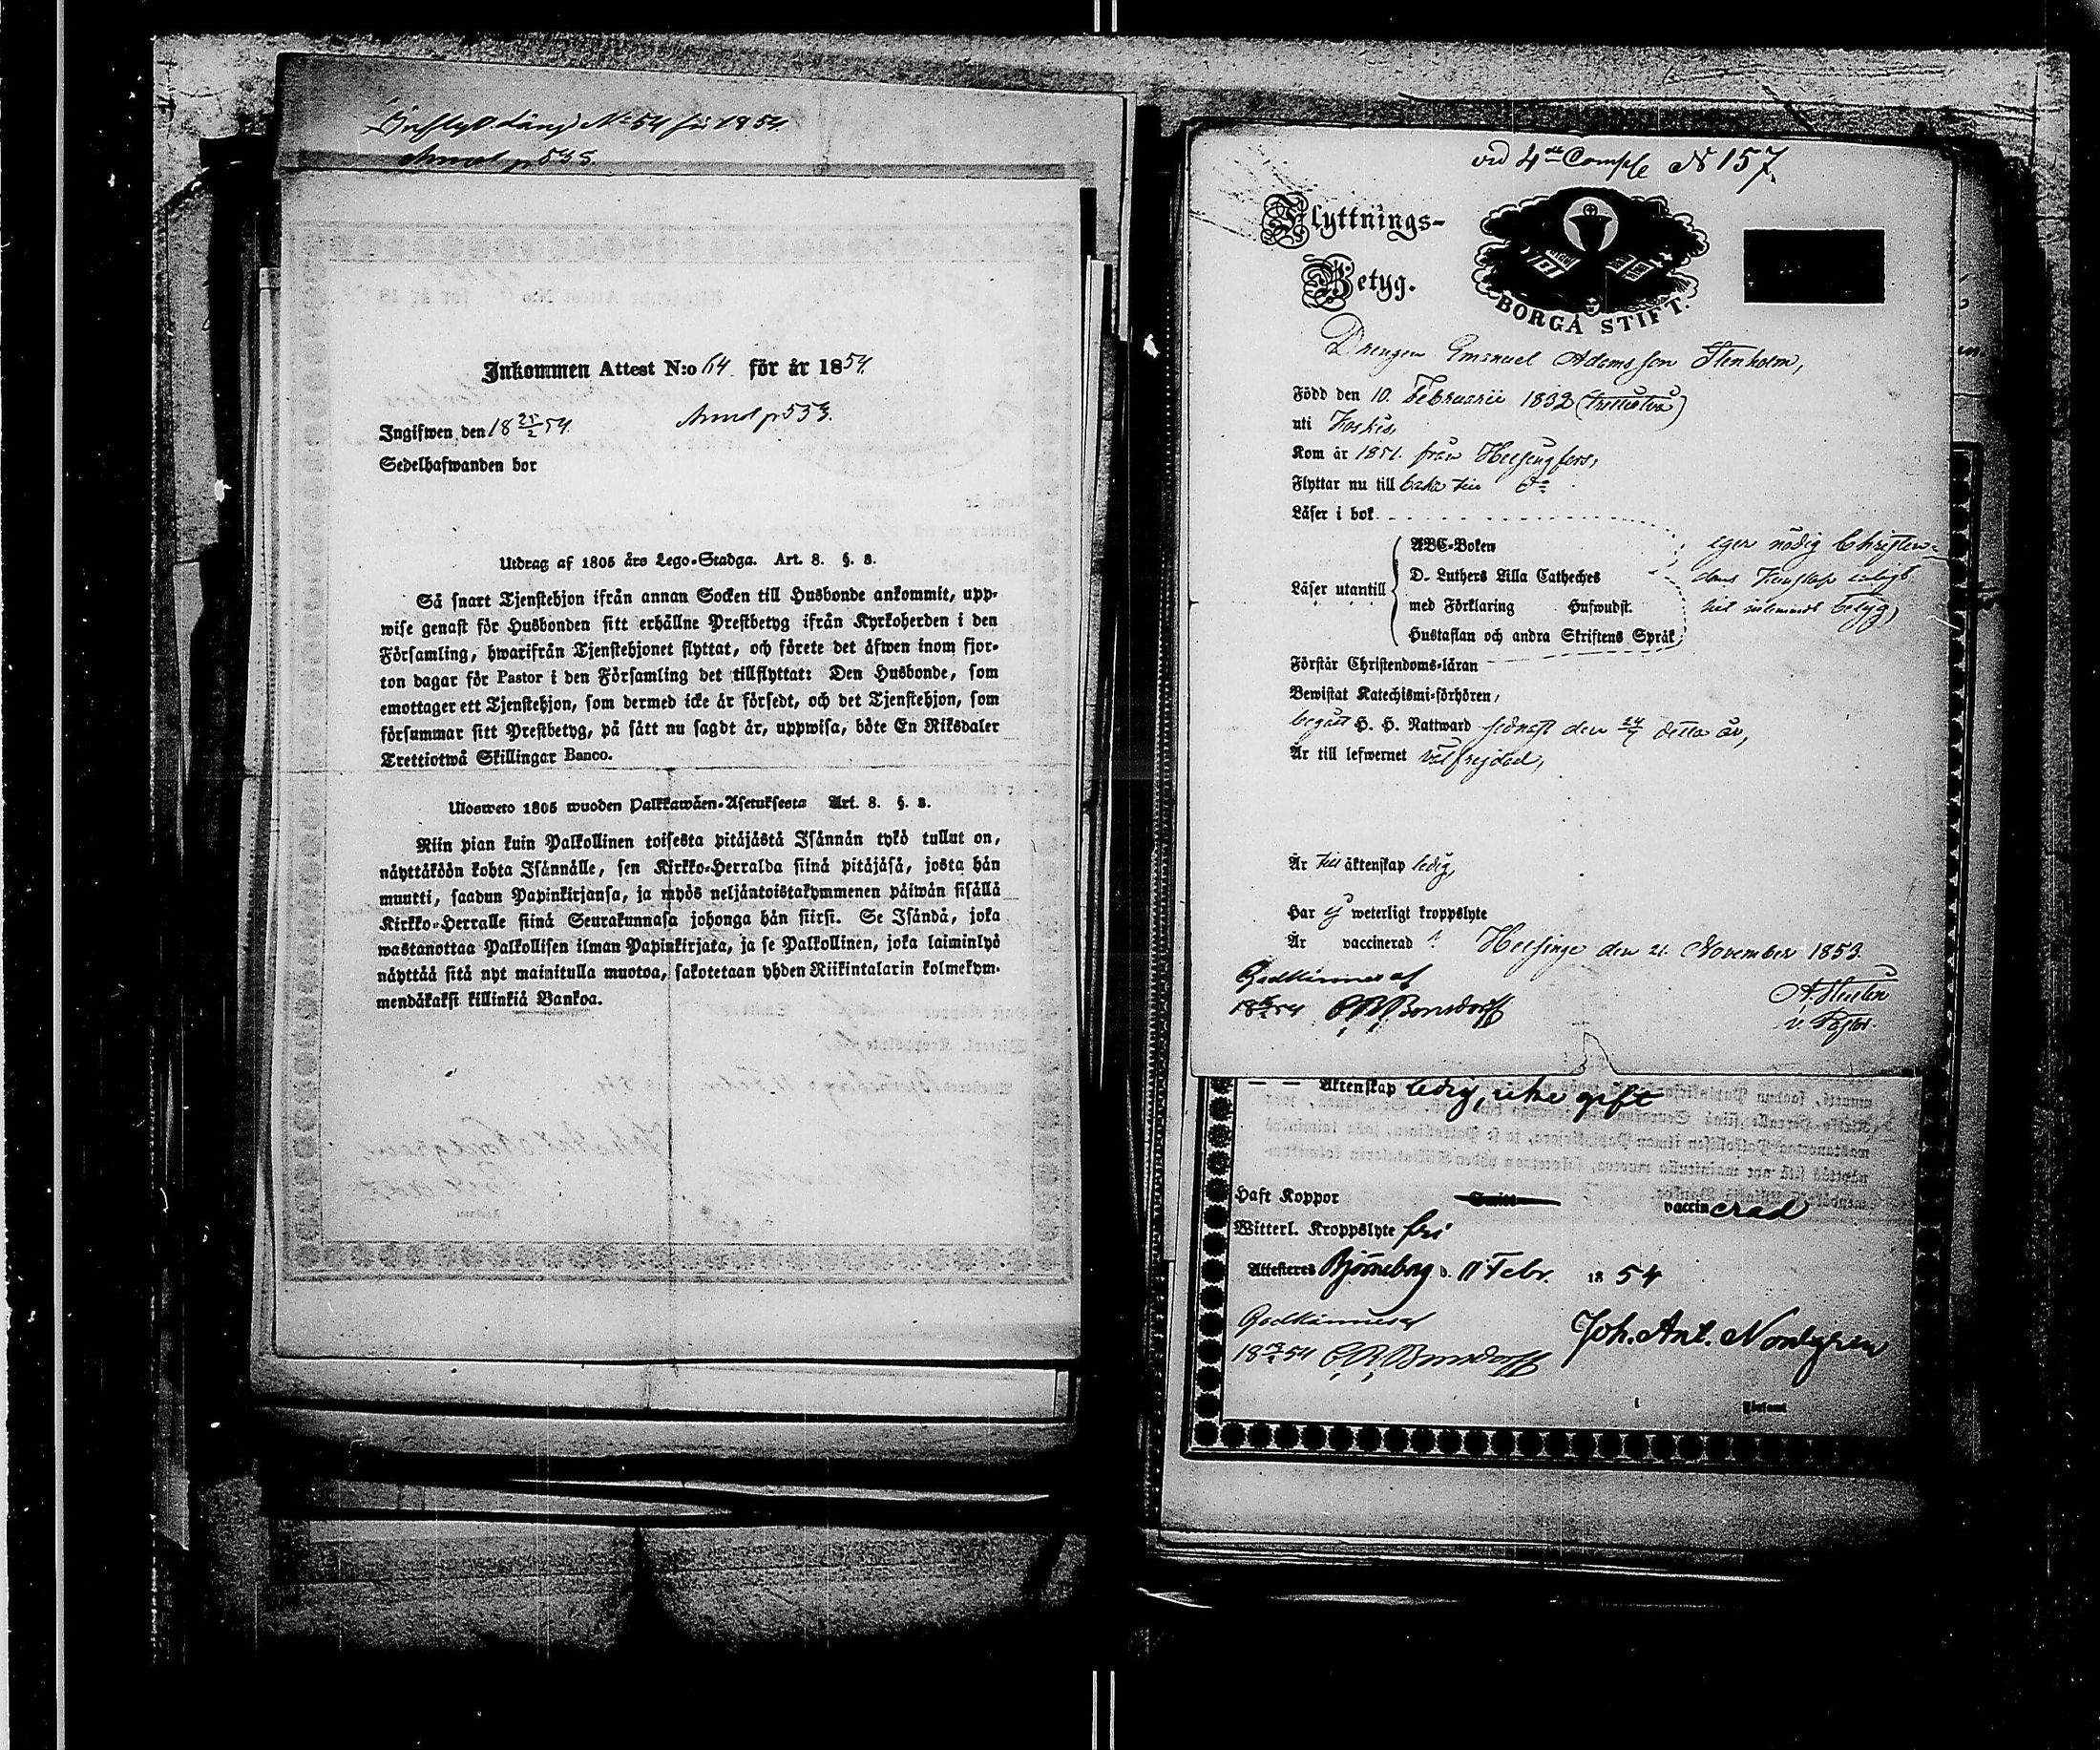 Inflytt. Läng. No 54 för 1854
Annot p 535.
Inkommen Attest N:o 64 för år 1854.
Annot p 533.
Ingifwen den 18 25/2 54.
Sedelhafwanden bor
Utdrag af 1805 års Lego-Stadga. Art. 8. §. 8.
Så snart Tjenstehjon ifrån annan Socken till Husbonde ankommit, upp-
wise genast för Husbonden sitt erhållne Prestbetyg ifrån Kyrkoherden i den
Församling, hwarifrån Tjenstehjonet flyttat, och förete det äfwen inom fjor-
ton dagar för Pastor i den Församling det tillflyttat: Den Husbonde, som
emottager ett Tjenstehjon, som dermed icke är försedt, och det Tjenstehjon, som
försummar sitt Prestbetyg, på sätt nu sagdt är, uppwisa, böte En Riksdaler
Trettiotwå Skillingar Banco.
Ulosweto 1805 wuoden Palkkawäen-Asetuksesta Art. 8. §. 8.
Niin pian kuin Palkollinen toisesta pitäjästä Isännän tykö tullut on,
näyttäköön kohta Isännälle, sen Kirkko-Herralda siinä pitäjäsä, josta hän
muutti, saadun Papinkirjansa, ja myös neljäntoistakymmenen päiwän sisällä
Kirkko-Herralle siinä Seurakunnasa johonga hän siirsi. Se Isändä, joka
wastanottaa Palkollisen ilman Papinkirjata, ja se Palkollinen, joka laiminlyö
näyttää sitä nyt mainitulla muotoa, sakotetaan yhden Riikintalarin kolmekym-
mendäkaksi killinkiä Bankoa.
vid 4de Comp. N 157.
Flyttnings-
Betyg.
BORGÅ STIFT.
Drengen Emanuel Adamsson Stenholm,
Född den 10. Februarii 1832 (trettiotvå)
uti Koskis,
Kom år 1851. från Helsingfors,
Flyttar nu till baka till do
Läser i bok
ABC-Boken
D. Luthers Lilla Catheches
Läser utantill
med Förklaring Hufwudst.
Hustaflan och andra Skriftens Språk,
eger nödig Christen-
doms kunskap enligt
hit inlemnadt betyg,
Förstår Christendoms-läran
Bewistat Katechismi-förhören,
begått H. H. Nattward sednast den 24/7 detta år,
Är till lefwernet välfrejdad,
Är till äktenskap ledig,
Har ej weterligt kroppslyte
Är vaccinerad
Helsinge den 21. November 1853.
Godkännes af
v. Pastor.
Äktenskap ledig, icke gift
Haft Koppor
vaccinerad
Witterl. Kroppslyte fri
Attesteres Björneborg d. 11 Febr. 1854
Godkännes af
Joh. Ant. Nordgren